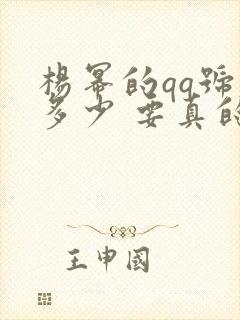 楊幂的qq號
多少 要真的
王申國